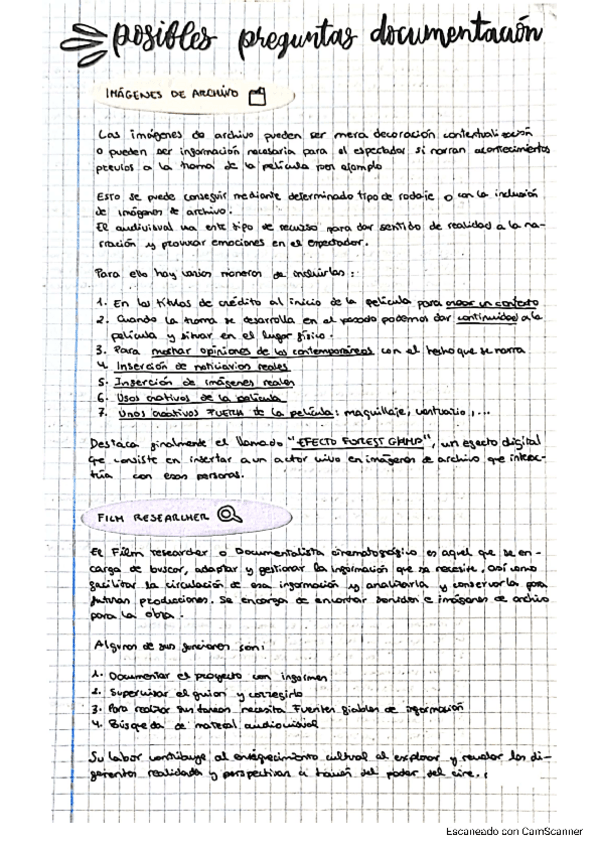 posibles preguntas documentación
IMÁGENES DE ARCHIVO
Las imágenes de archivo pueden ser mera decoración contextualización
o pueden ser información necesaria para el espectador si narran acontecimientos
previos a la trama de la película por ejemplo
Esto se puede conseguir mediante determinado tipo de rodaje o con la inclusión
de imágenes de archivo.
El audiovisual usa este tipo de recurso para dar sentido de realidad a la na-
rración y provocar emociones en el espectador.
Para ello hay varias maneras de incluirlas:
1. En los títulos de crédito al inicio de la película para crear un contexto
2. Cuando la trama se desarrolla en el pasado podemos dar continuidad a la
película y situar en el lugar físico.
3. Para mostrar opiniones de los contemporáneos con el hecho que se narra
4. Inserción de noticiarios reales
5. Inserción de imágenes reales
6. Usos creativos de la película
7. Usos creativos FUERA de la película: maquillaje, vestuario,...
Destaca finalmente el llamado "EFECTO FOREST GUMP", un efecto digital
que consiste en insertar a un actor vivo en imágenes de archivo que interac-
túa con esas personas.
FILM RESEARCHER
El Film researcher o Documentalista cinematográfico es aquel que se en-
carga de buscar, adaptar y gestionar la información que se necesite, así como
facilitar la circulación de esa información y analizarla y conservarla para
futuras producciones. Se encarga de encontrar sonidos e imágenes de archivo
para la obra.
Algunas de sus funciones son:
1. Documentar el proyecto con informes
2. Supervisar el guion y corregirlo
3. Para realizar sus tareas necesita Fuentes fiables de información
4. Búsqueda de material audiovisual
Su labor contribuye al enriquecimiento cultural al explorar y revelar las di-
ferentes realidades y perspectivas a través del poder del cine.
Escaneado con CamScanner